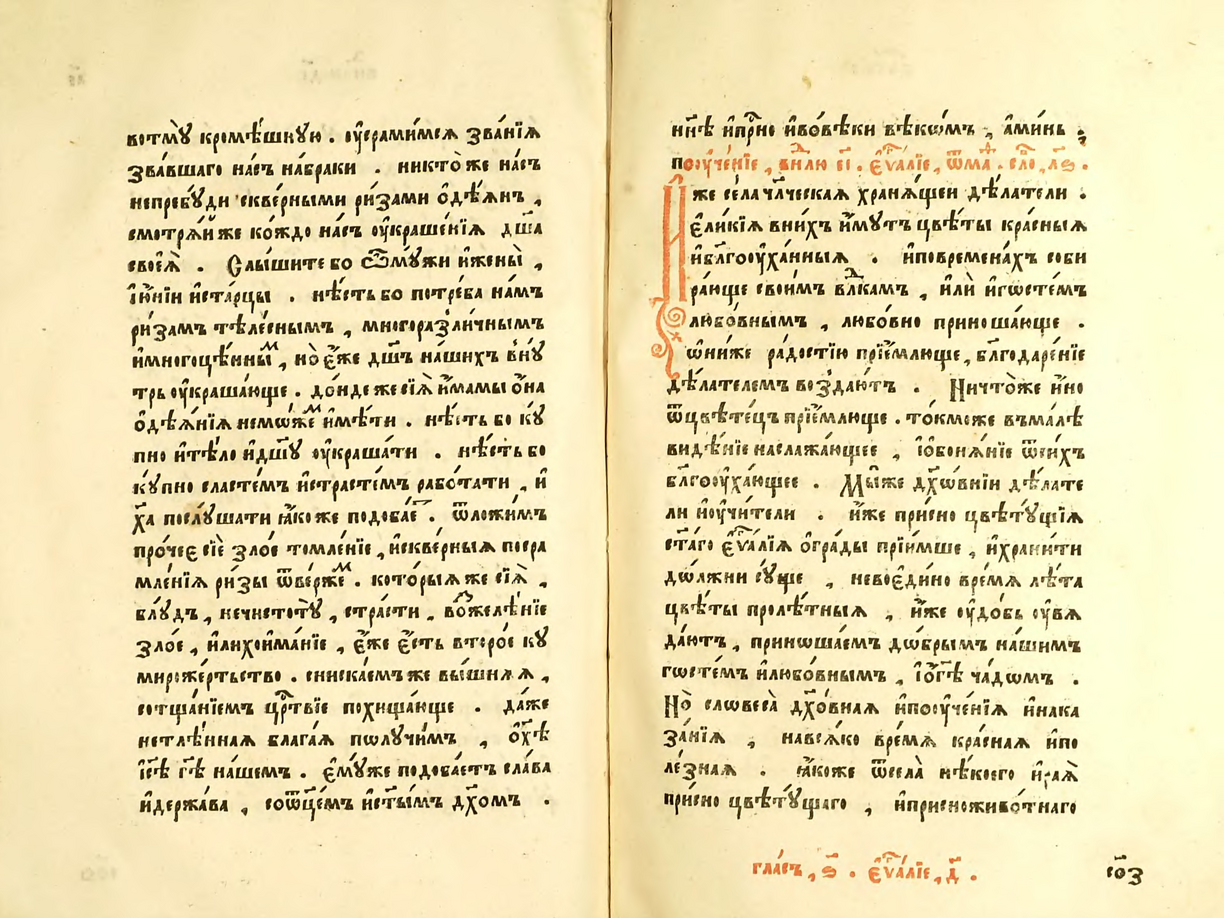 вотмꙋ̀ кромѣ́шнꙋю . оу҆срами́мсѧ зва́нїѧ
зва́вшаго на́съ на́браки . никто́же на́съ
непребꙋ́ди скве́рными ри́зами ѻ҆дѣ́ѧнъ ,
смотрѧ́йже ко́ждо на́съ оу҆краше́нїѧ дш҃а
своеѧ̀ . Слы́шите бо ѿмꙋ́жи и҆жены̀ ,
ю҆́нїи и҆ста́рцы . нѣ́сть бо потре́ба на́мъ
ри́замъ тѣле́снымъ , многоразли́чнымъ
и҆многоцѣ́нныⷨ , но̀ є҆́же дш҃ъ на́шихъ внꙋ́
трь оу҆краша́юще . до́нде же сїѧ̀ и҆́мамы ѻ҆́на
ѻ҆дѣ́ѧнїѧ немѡ́жеⷨ и҆мѣ́ти . нѣ́сть бо кꙋ́
пно и҆тѣ́ло и҆дш҃ꙋ оу҆краша́ти . нѣ́сть бо
кꙋ́пно сласте́мъ и҆страсте́мъ рабо́тати , и҆
х҃а послꙋ́шати ꙗ҆́коже подоба́еⷮ . ѿложи́мъ
про́чее сїѐ зло́е томле́нїе , и҆скве́рныѧ посра
мле́нїѧ ри́зы ѿве́ржеⷨ . кото́рыѧже сїѧ̀ ,
блꙋ́дъ , нечистотꙋ̀ , стра́сти , вожделѣ́нїе
зло́е , и҆лихоима́нїе , є҆́же є҆́сть второ́е кꙋ
миро́жертьство . сниска́емъже вы́шнѧѧ ,
сотща́нїемъ црⷭ҇твїе похища́юще . да́же
нетлѣ́ннаѧ блага́ѧ пѡлꙋчи́мъ , ѻ҆х҃ѣ
і҆с҃ѣ гд҃ѣ на́шемъ . є҆мꙋ́же подоба́етъ сла́ва
и҆держа́ва , соѻ҆ц҃е́мъ и҆ст҃ы́мъ дх҃омъ .
ны́нѣ и҆при́сно и҆вово́ѣки вѣкѡ́мъ , а҆ми́нь .
поꙋче́нїе , внⷣлю є҃і . є҆ѵⷢ҇а́лїе , ѿмⷴ҇а . сло́ , л҃ѕ .
И҆́же се́ла чл҃ческаѧ хранѧ́щеи дѣ́латели .
є҆ли́кїѧ вни́хъ и҆́мꙋтъ цвѣ́ты кра́сныѧ
и҆бл҃гоꙋха́нныѧ . и҆повремена́хъ соби
ра́юще свои́мъ влⷣкамъ , и҆лѝ и҆гѡсте́мъ
любо́внымъ , любо́вно приноша́юще .
ѡ҆ни́же ра́достїю прїе́млюще , бл҃годаре́нїе
дѣ́лателемъ воздаю́тъ . Ничто́же и҆́но
ѿцвѣте́цъ прїе́млюще . то́кможе въма́лѣ
видѣ́нїе наслажа́ющее , і҆ѻ҆боня́нїе ѿси́хъ
бл҃гоꙋха́ющее . Мы́же дх҃о́внїи дѣ́лате
ли и҆оу҆чи́тели . и҆́же при́сно цвѣтꙋ́щїѧ
ст҃а́го є҆ѵⷢ҇а́лїѧ ѻ҆гра́ды прїи́мше , и҆храни́ти
дѡ́лжни сꙋ́ще , невоє҆ди́но вре́мѧ лѣ́та
цвѣ́ты пролѣ́тныѧ , и҆́же оу҆до́бь оу҆вѧ
да́ютъ , принѡша́емъ дѡ́брымъ на́шимъ
гѡсте́мъ и҆любо́внымъ , і҆ѻ҆гд҃ѣ ча́дѡмъ .
Но̀ словеса̀ дх҃о́внаѧ и҆поꙋче́нїѧ и҆нака
за́нїѧ , навсѧ́ко вре́мѧ кра́снаѧ и҆по
ле́знаѧ . ꙗ҆́коже ѿсела̀ нѣ́коего и҆раѧ̀
при́сно цвѣтꙋ́щаго , и҆присноживо́тнаго
гла́съ , ѕ҃ . є҆ѵⷢ҇а́лїе , д҃ .
со҃з